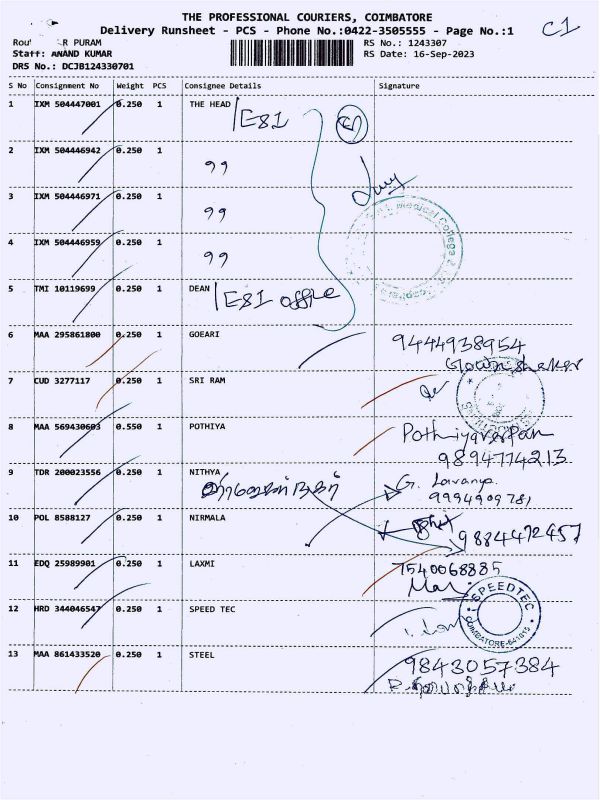 THE PROFESSIONAL COURIERS, COIMBATORE
C1
Delivery Runsheet - PCS - Phone No.:0422-3505555 - Page No.:1
R PURAM
RS No.: 1243307
Staff: ANAND KUMAR
RS Date: 16-Sep-2023
DRS No.: DCJB124330701
S No Consignment No Weight PCS Consignee Details Signature
1 IXM 504447001 0.250 1 THE HEAD / ESI
2 IXM 504446942 0.250 1 99
3 IXM 504446971 0.250 1 99
4 IXM 504446959 0.250 1 99
Medical College
5 TMI 10119699 0.250 1 DEAN / ESI office
6 MAA 295861800 0.250 1 GOEARI 9444938954
7 CUD 3277117 0.250 1 SRI RAM
8 MAA 569430603 0.550 1 POTHIYA
9894774213
9 TDR 200023556 0.250 1 NITHYA G. Lavanya
9994909781
10 POL 8588127 0.250 1 NIRMALA 9884472457
11 EDQ 25989901 0.250 1 LAXMI 7540068885
12 HRD 344046547 0.250 1 SPEED TEC
SPEEDTEC
COIMBATORE-641015
13 MAA 861433520 0.250 1 STEEL 9843057384